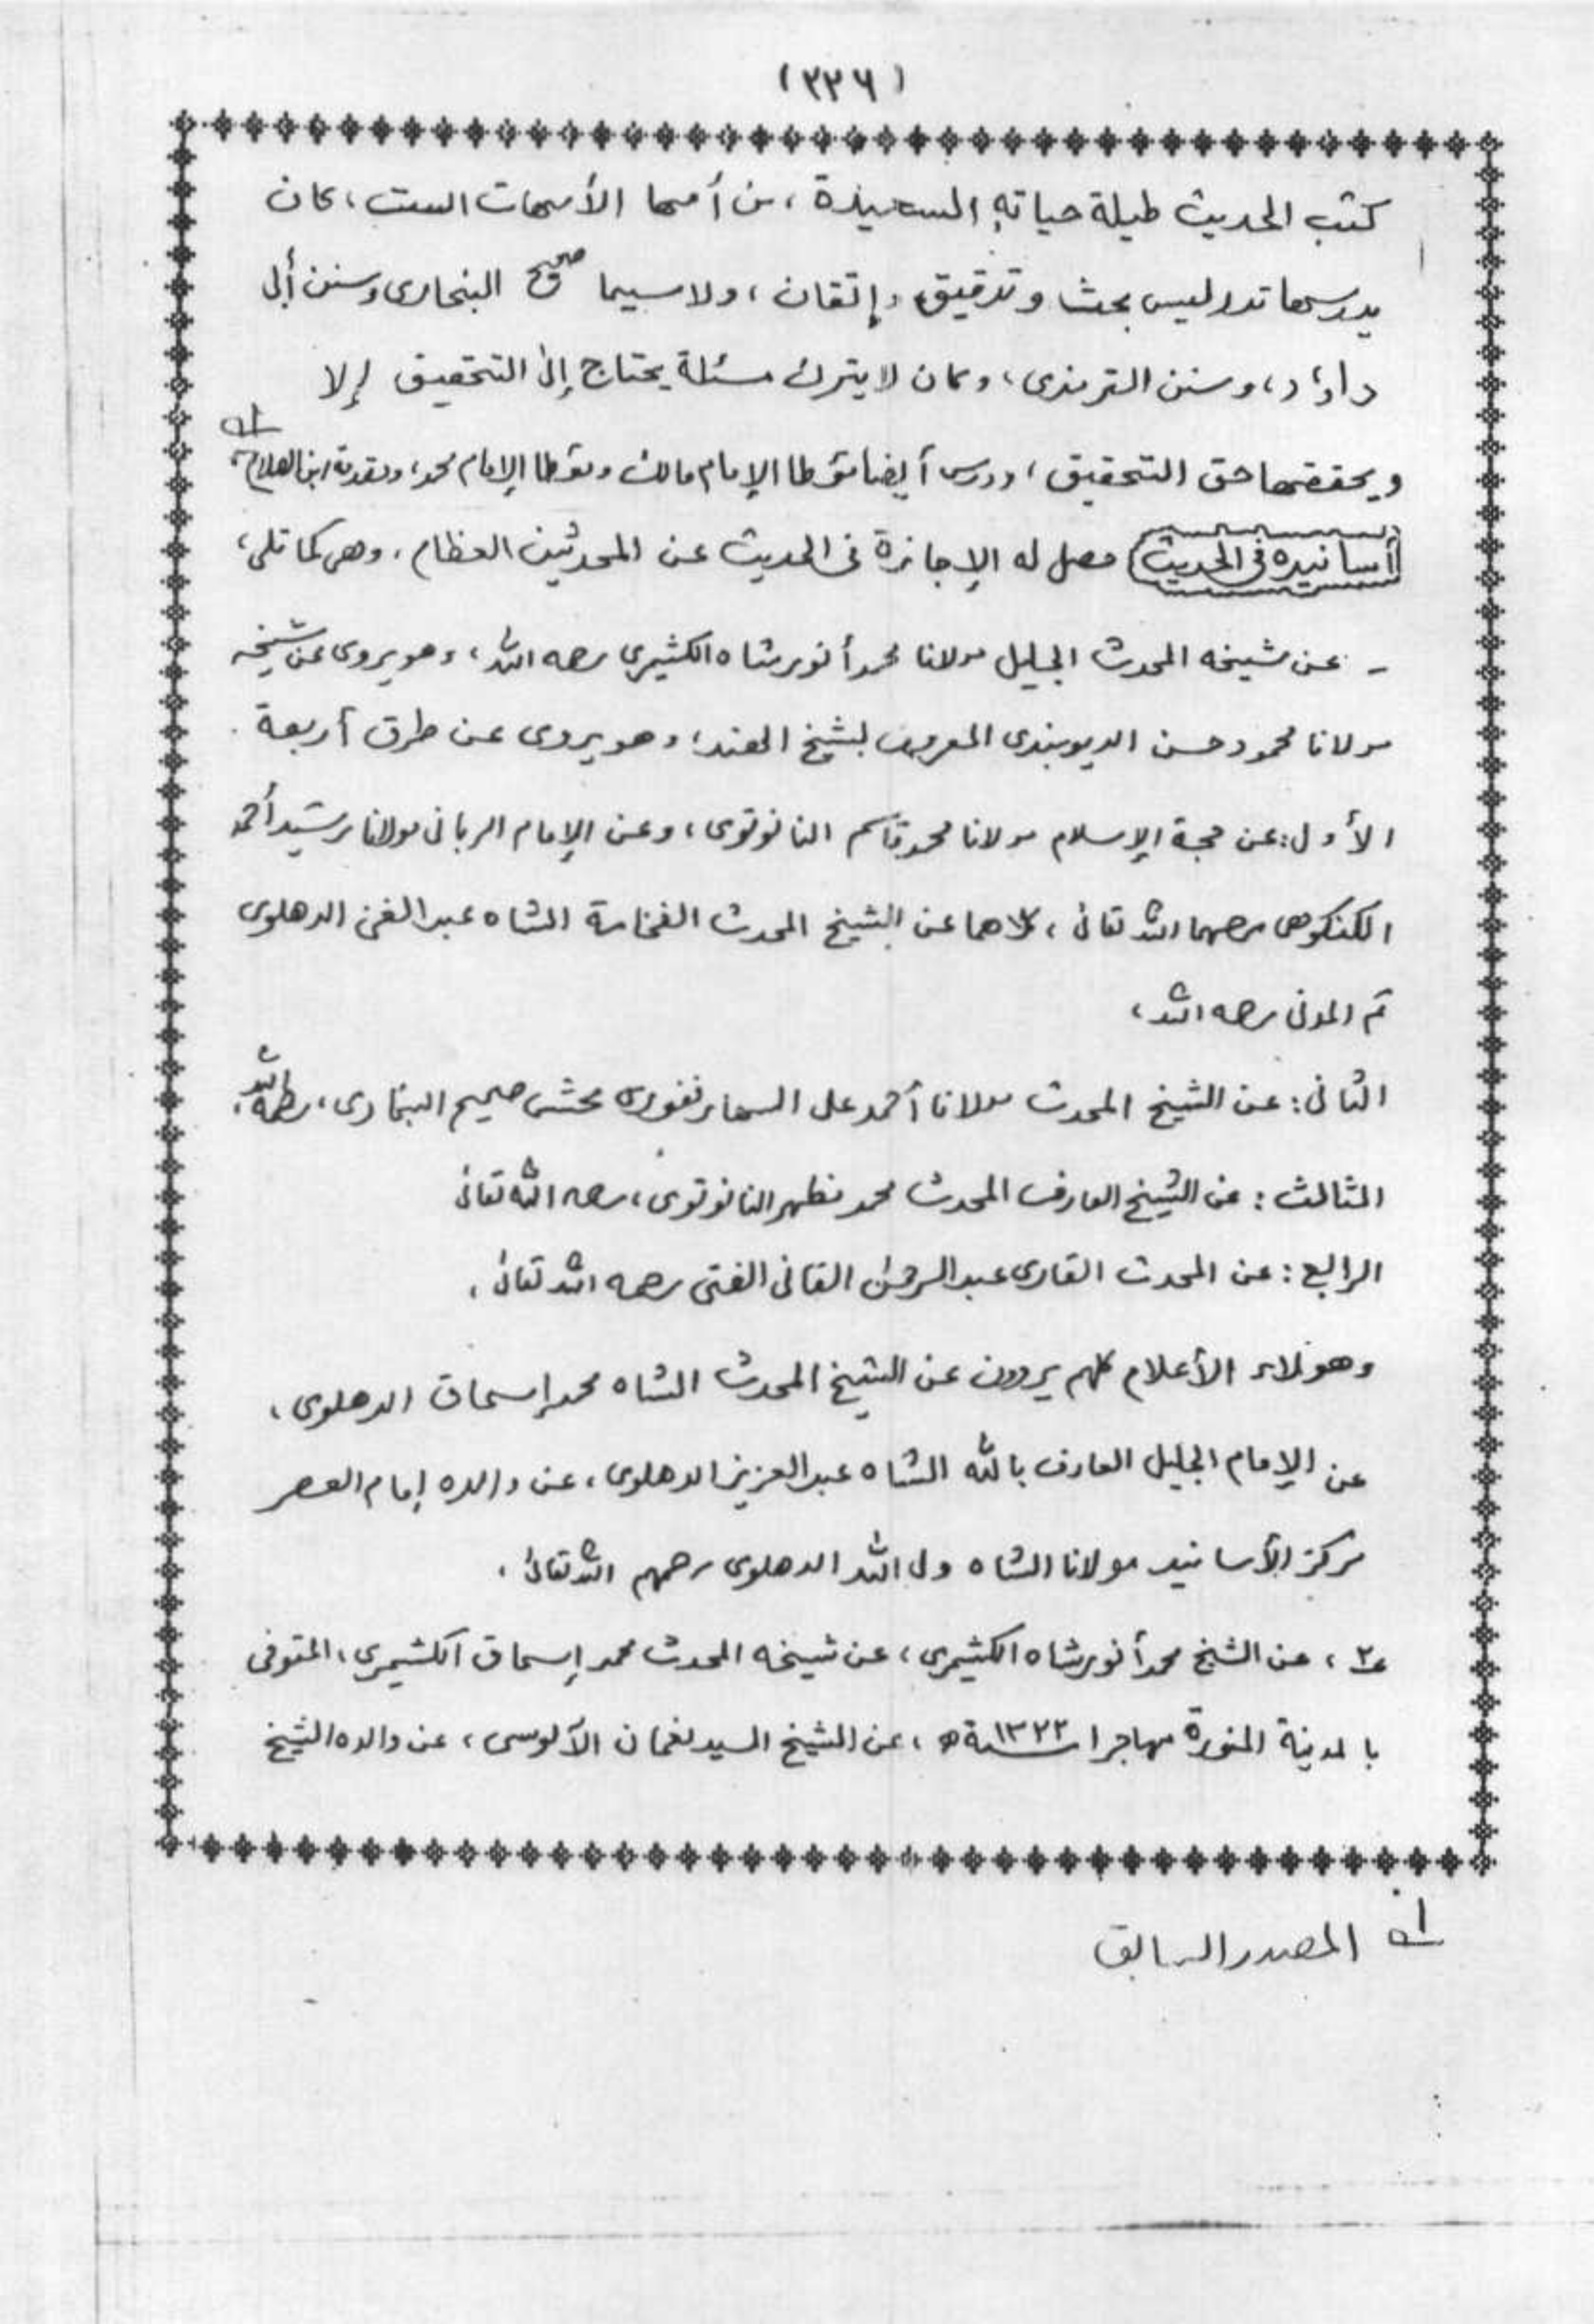 (٣٣٦)
كتب الحديث طيلة حياته السعيدة ، من أهمها الأمهات الست ، كان
يدرسها تدريس بحث وتدقيق وإتقان ، ولاسيما صحيح البخارى وسنن أبى
داؤد ، وسنن الترمذى ، وكان لا يترك مسئلة يحتاج إلى التحقيق إلا
ويحققها حق التحقيق ، ودرس أيضا مؤطا الإمام مالك ومؤطا الإمام محمد ، ومقدمة ابن الصلاح ، ١ه
أسانيده فى الحديث حصل له الإجازة فى الحديث عن المحدثين العظام ، وهى كما تلى ،
- عن شيخه المحدث الجليل مولانا محمد أنور شاه الكشيرى رحمه الله ، وهو يروى عن شيخه
مولانا محمود حسن الديوبندى المعروف بشيخ الهند ، وهو يروى عن طرق أربعة .
الأول : عن حجة الإسلام مولانا محمد قاسم النانوتوى ، وعن الإمام الربانى مولانا رشيد أحمد
الكنكوهى رحمهما الله تعالى ، كلاهما عن الشيخ المحدث الفخامة الشاه عبد الغنى الدهلوى
ثم المدنى رحمه الله ،
الثانى : عن الشيخ المحدث مولانا أحمد على السهارنفورى محشى صحيح البخارى ، رحمه الله ،
الثالث : عن الشيخ العارف المحدث محمد مظهر النانوتوى ، رحمه الله تعالى
الرابع : عن المحدث القارى عبد الرحمن الفانى الفتى رحمه الله تعالى ،
وهؤلاء الأعلام كلهم يروون عن الشيخ المحدث الشاه محمد إسحاق الدهلوى ،
عن الإمام الجليل العارف بالله الشاه عبد العزيز الدهلوى ، عن والده إمام العصر
مركز الأسانيد مولانا الشاه ولى الله الدهلوى رحمهم الله تعالى ،
٢ ، عن الشيخ محمد أنور شاه الكشيرى ، عن شيخه المحدث محمد إسحاق الكشميرى ، المتوفى
بالمدينة المنورة مهاجرا سنة ١٣٢٢ه ، عن الشيخ السيد نعمان الآلوسى ، عن والده الشيخ
١ه المصدر السابق